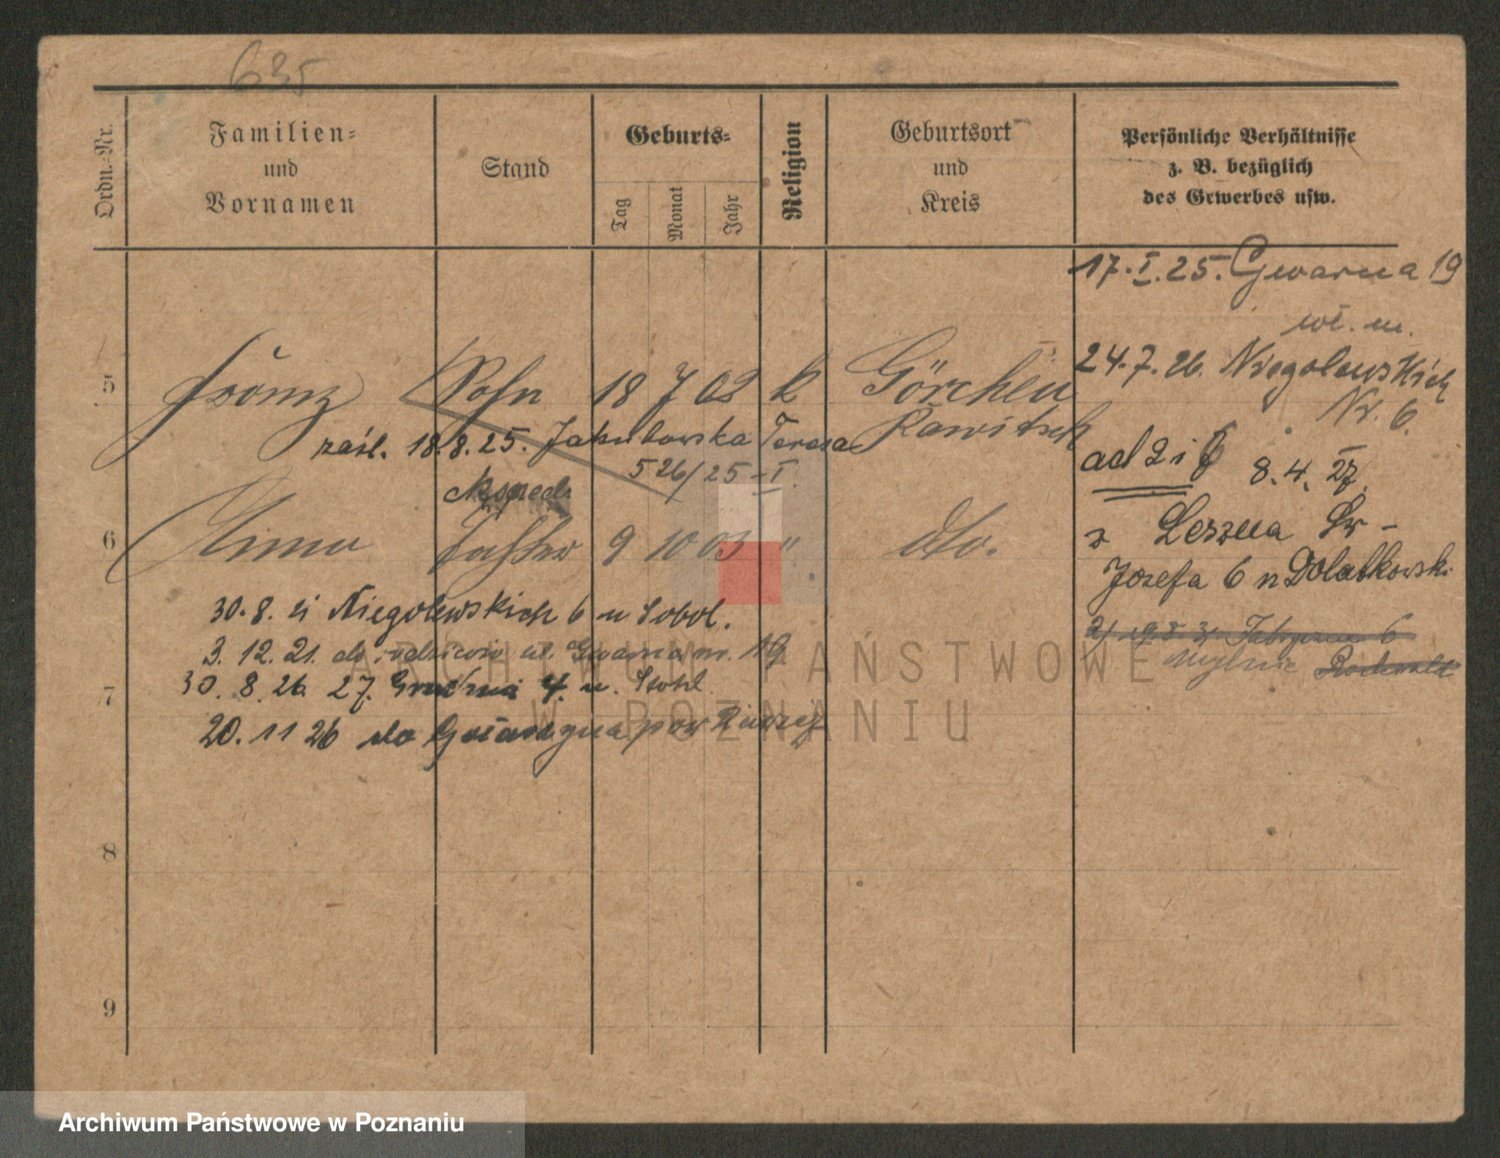 635
Ordn.-Nr.
Familien-
und
Vornamen
Stand
Geburts-
Tag
Monat
Jahr
Religion
Geburtsort
und
Kreis
Persönliche Verhältnisse
z. B. bezüglich
des Gewerbes usw.
17.I.25. Gwarna 19
24.7.26. Niegolewskich
Nr. 6.
5 Franz Sohn 18 7 02 k Görchen
Rawitsch
zaśl. 18.8.25. Jakubowska Teresa
526/25-I.
eksped.
ad 2 i 6 8.4.27.
6 Anna Tochter 9 10 03 " dto.
z Leszna Św-
Józefa 6 u Dolatkowski
30.8. Niegolewskich 6 u Sobol.
3.12.21. do rodziców ul. Gwarna nr. 19
7
30.8.26. 27. 4. u.
20.11 26 do pow
8
9
ARCHIWUM PAŃSTWOWE
W POZNANIU
Archiwum Państwowe w Poznaniu